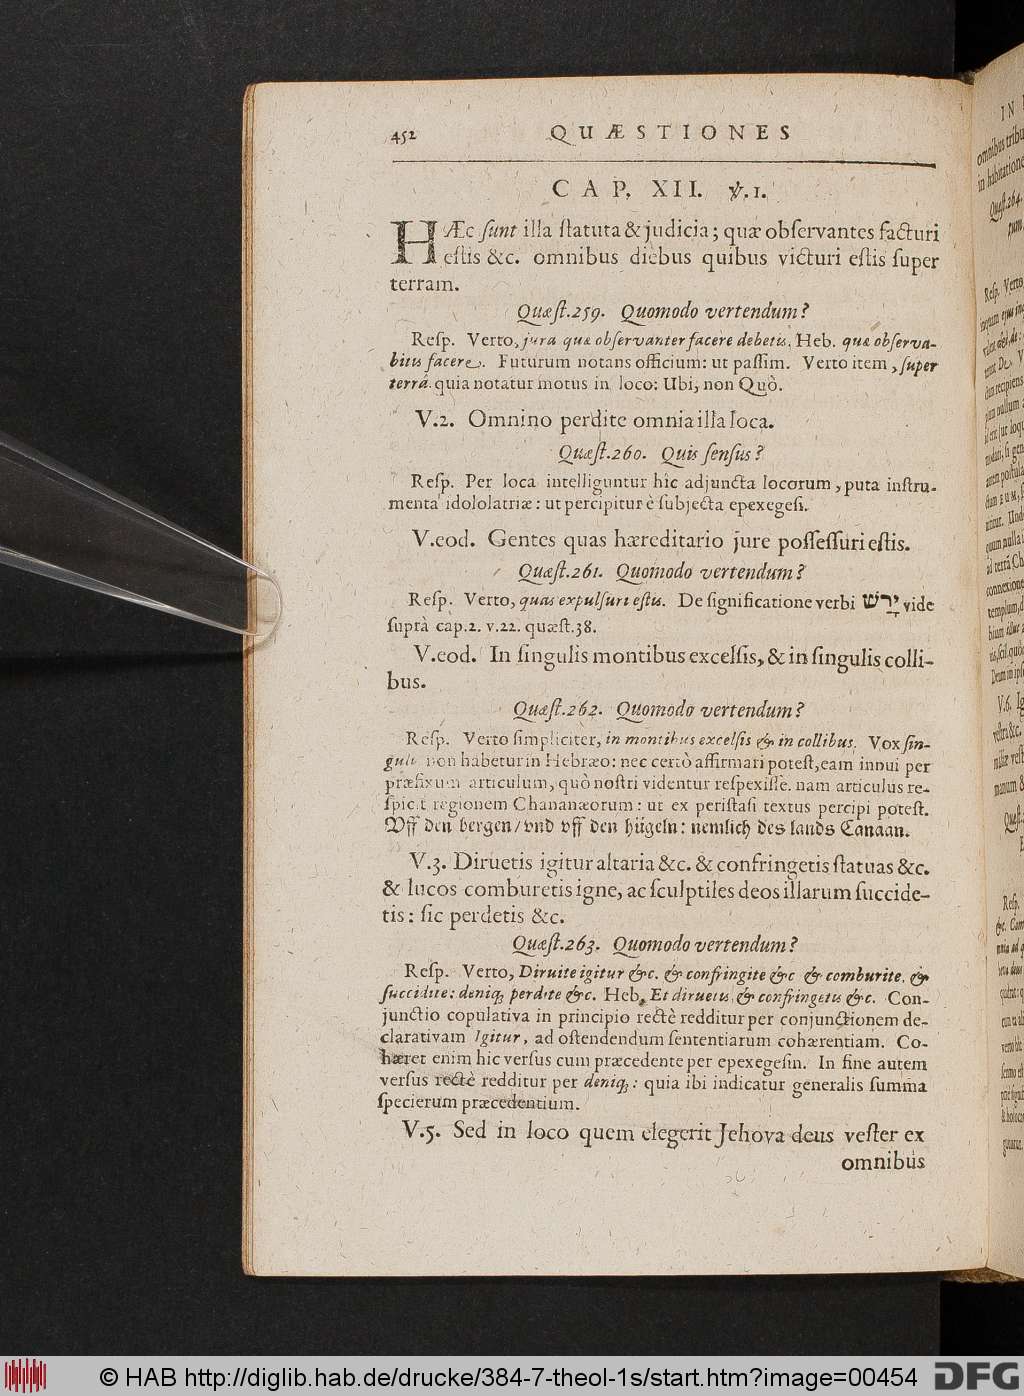 452 QUÆSTIONES
CAP. XII. ℣.1.
HÆc ſunt illa ſtatuta & judicia; quæ obſervantes facturi
eſtis &c. omnibus diebus quibus victuri eſtis ſuper
terram.
Quæſt.259. Quomodo vertendum?
Reſp. Verto, jura quæ obſervanter facere debetis. Heb. quæ obſerva-
bitis facere. Futurum notans officium: ut paſſim. Verto item, ſuper
terrâ. quia notatur motus in loco: Ubi, non Quò.
V.2. Omnino perdite omnia illa loca.
Quæſt.260. Quis ſenſus?
Reſp. Per loca intelliguntur hic adjuncta locorum, puta inſtru-
menta idololatriæ: ut percipitur è ſubjecta epexegeſi.
V.eod. Gentes quas hæreditario jure poſſeſſuri eſtis.
Quæſt.261. Quomodo vertendum?
Reſp. Verto, quas expulſuri eſtis. De ſignificatione verbi יָרַשׁ vide
ſuprà cap.2. v.22. quæſt.38.
V.eod. In ſingulis montibus excelſis, & in ſingulis colli-
bus.
Quæſt.262. Quomodo vertendum?
Reſp. Verto ſimpliciter, in montibus excelſis & in collibus. Vox ſin-
guli non habetur in Hebræo: nec certò affirmari poteſt, eam innui per
præfixum articulum, quò noſtri videntur reſpexiſſe. nam articulus re-
ſpicit regionem Chananæorum: ut ex periſtaſi textus percipi poteſt.
Vff den bergen/vnd vff den hügeln: nemlich des lands Canaan.
V.3. Diruetis igitur altaria &c. & confringetis ſtatuas &c.
& lucos comburetis igne, ac ſculptiles deos illarum ſuccide-
tis: ſic perdetis &c.
Quæſt.263. Quomodo vertendum?
Reſp. Verto, Diruite igitur &c. & confringite &c & comburite. &
ſuccidite: deniq; perdite &c. Heb. Et diruetis & confringetis &c. Con-
junctio copulativa in principio rectè redditur per conjunctionem de-
clarativam Igitur, ad oſtendendum ſententiarum cohærentiam. Co-
hæret enim hic verſus cum præcedente per epexegeſin. In fine autem
verſus rectè redditur per deniq;: quia ibi indicatur generalis ſumma
ſpecierum præcedentium.
V.5. Sed in loco quem elegerit Jehova deus veſter ex
omnibus
© HAB http://diglib.hab.de/drucke/384-7-theol-1s/start.htm?image=00454 DFG